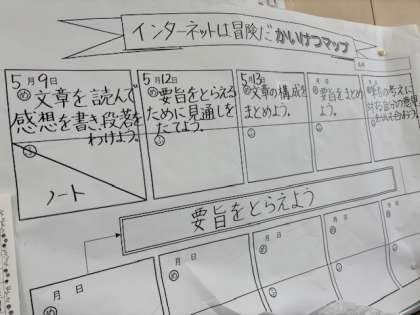 インターネットは冒険だ かいけつマップ
5月9日
め 文章を読んで
感想を書き段落を
わけよう。
ふ
ノート
5月12日
め 要旨をとらえる
ために見通しを
たてよう。
ふ
5月13日
め 文章の構成を
まとめよう。
ふ
月 日
め 要旨をまとめ
よう。
ふ
要旨をとらえよう
月 日
め
月 日
め
ふ
月 日
め
ふ
月 日
め
ふ
月 日